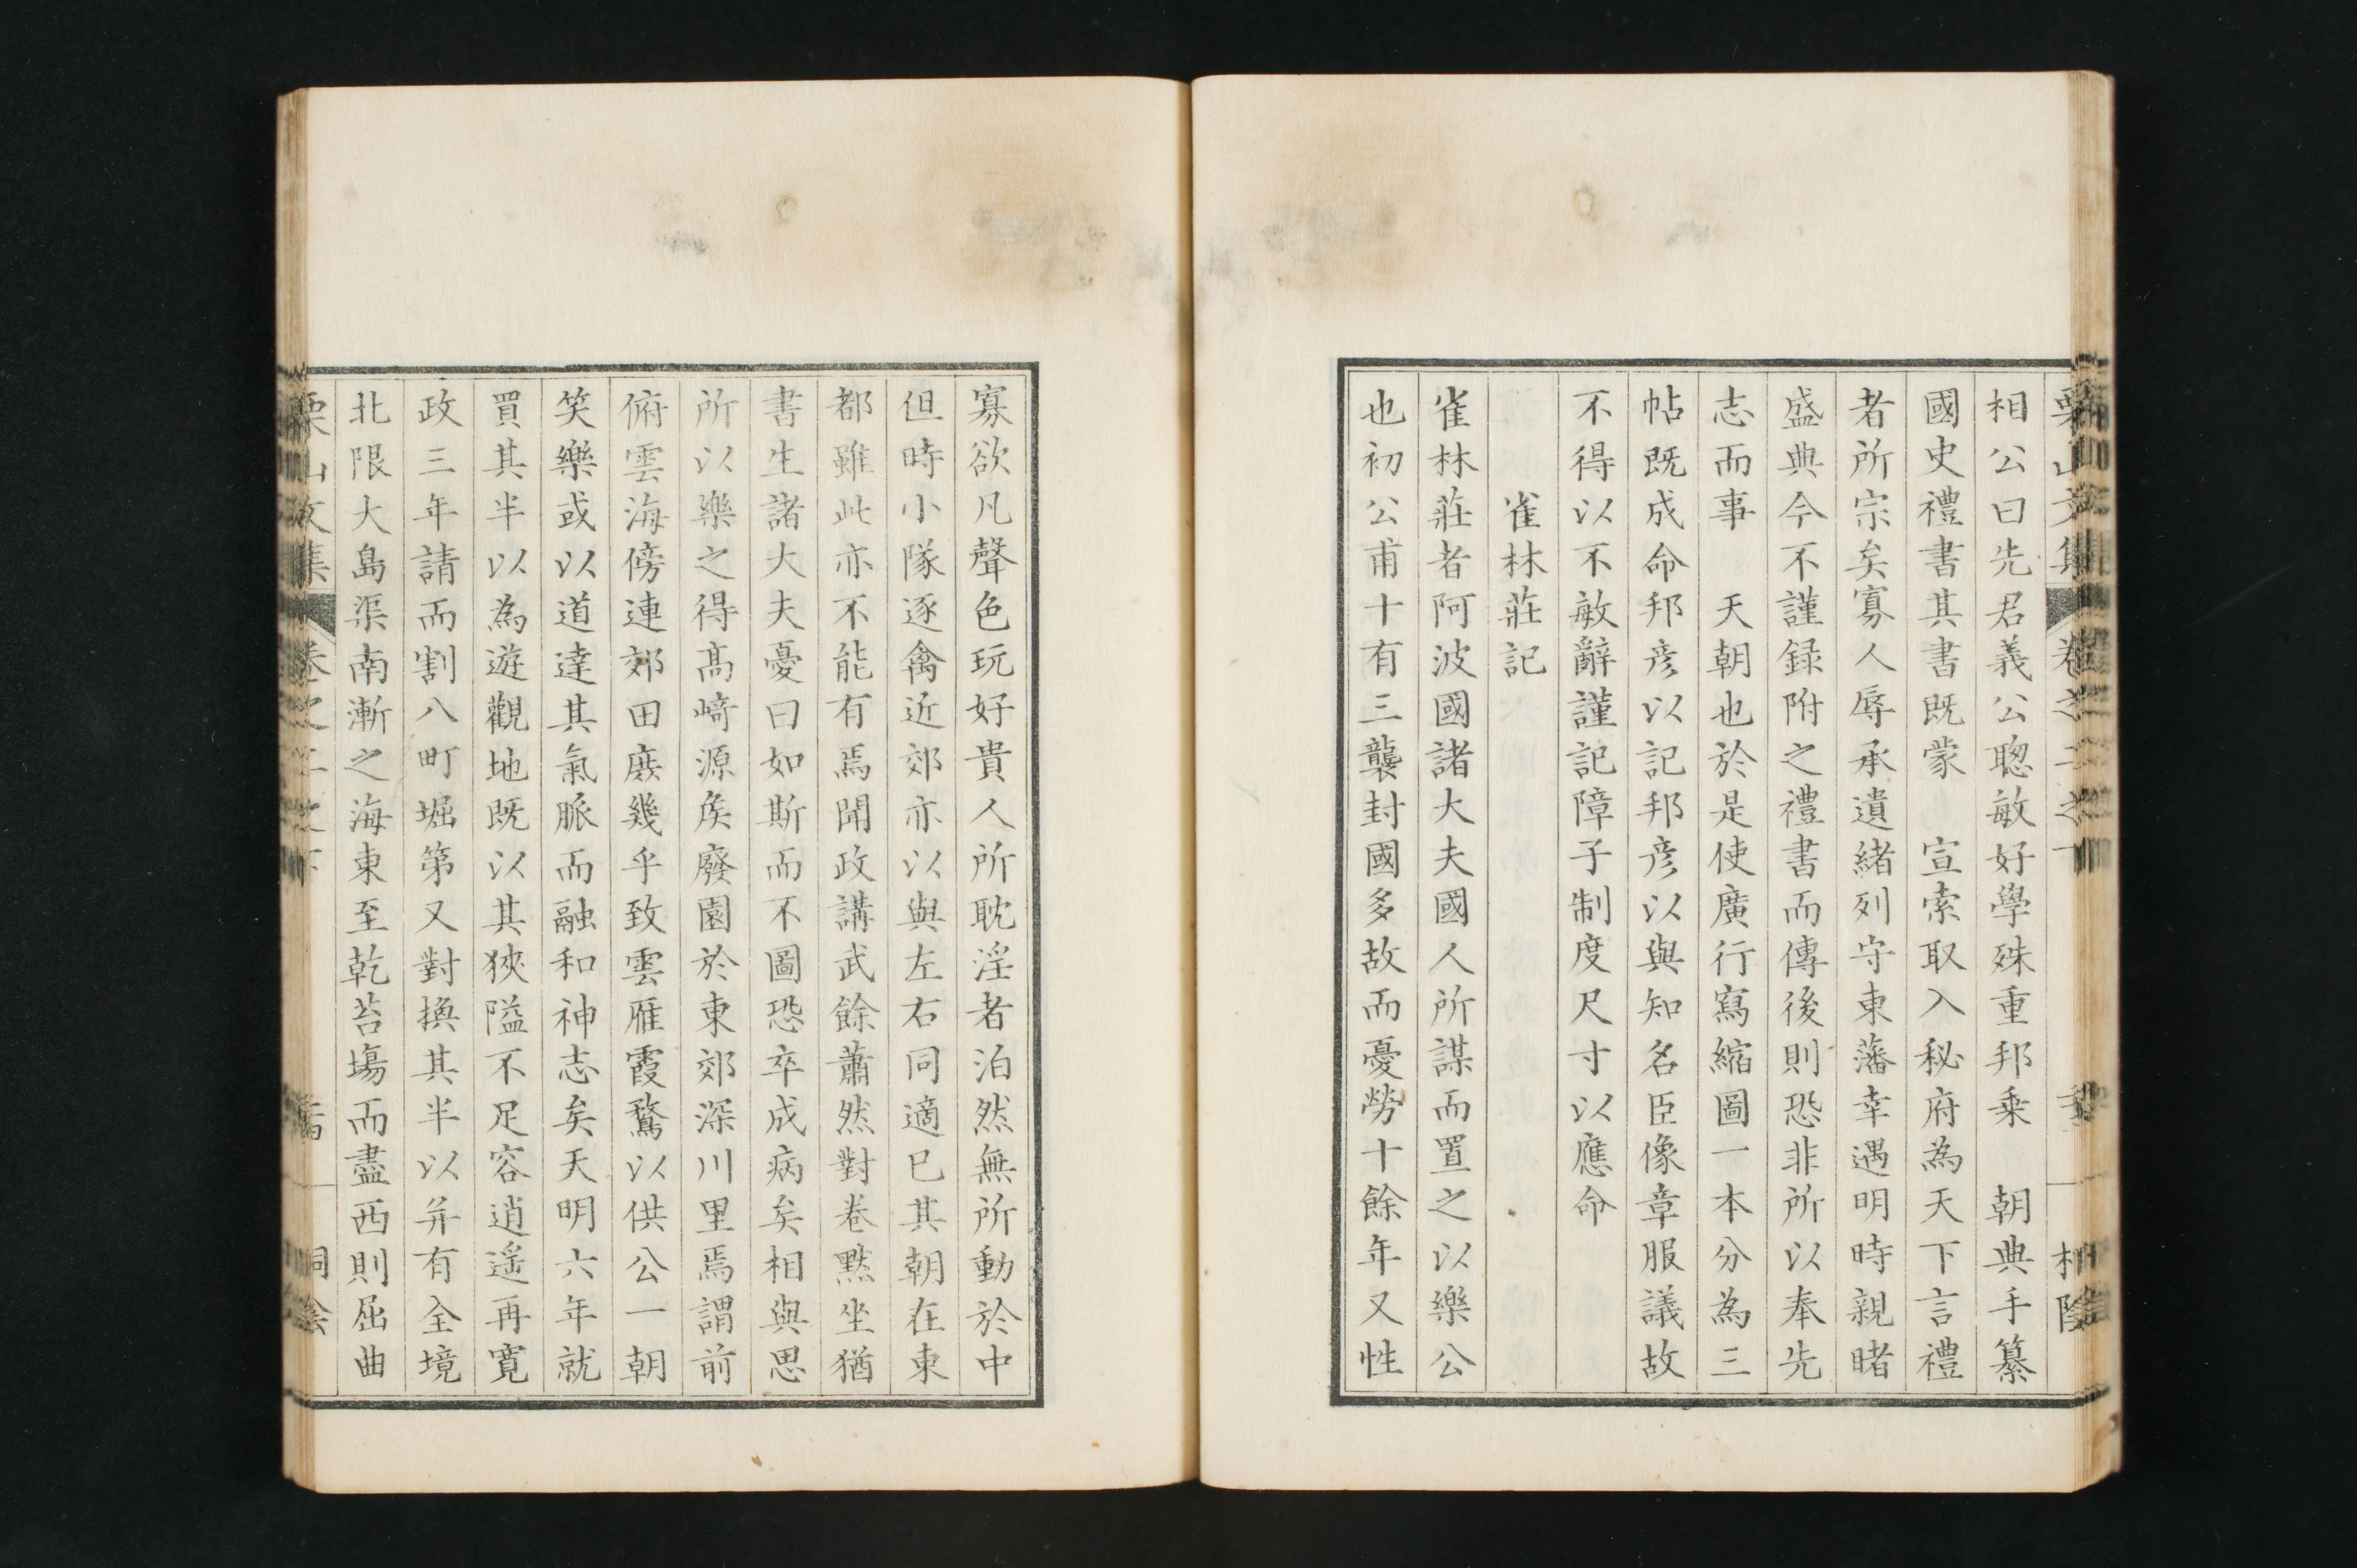 相公曰先君義公聰敏好學殊重邦乗　朝典手纂
國史禮書其書既蒙　宣索取入秘府為天下言禮
者所宗矣寡人辱承遺緒列守東藩幸遇明時親睹
盛典今不謹録附之禮書而傳後則恐非所以奉先
志而事　天朝也於是使廣行寫縮圖一本分為三
帖既成命邦彦以記邦彦以與知名臣像章服議故
不得以不敏辭謹記障子制度尺寸以應命
雀林莊記
雀林莊者阿波國諸大夫國人所謀而置之以樂公
也初公甫十有三襲封國多故而憂勞十餘年又性
寡欲凡聲色玩好貴人所耽淫者泊然無所動於中
但時小隊逐禽近郊亦以與左右同適已其朝在東
都雖此亦不能有焉聞政講武餘蕭然對卷黙坐猶
書生諸大夫憂曰如斯而不圖恐卒成病矣相與思
所以樂之得髙﨑源矦廢園於東郊深川里焉謂前
俯雲海傍連郊田庻幾乎致雲雁霞鶩以供公一朝
笑樂或以道達其氣脈而融和神志矣天明六年就
買其半以為遊觀地既以其狹隘不足容逍遥再寛
政三年請而割八町堀第又對換其半以并有全境
北限大島渠南漸之海東至乾苔塲而盡西則屈曲